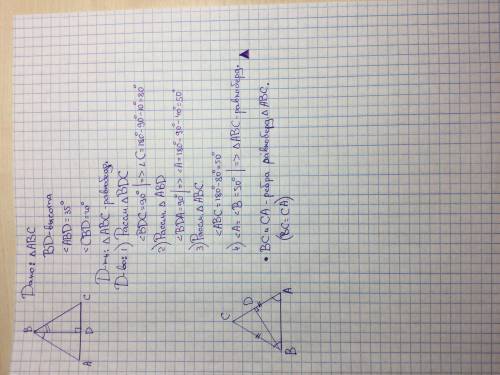 Дано: △ABC
BD-высота
<ABD=35°
<CBD=10°
Д-ть: △ABC-равнобедр.
Д-во: 1) Рассм. △BDC
<BDC=90° | => <C=180°-90°-10°=80°
2) Рассм. △ABD
<BDA=90° | => <A=180°-90°-40°=50°
3) Рассм. △ABC
<ABC=180°-80°=50°
4) <A=<B=50° | => △ABC-равнобедр. ▲
• BC и CA - ребра равнобедр △ABC.
(BC=CA)
B
A
D
C
C
D
B
A